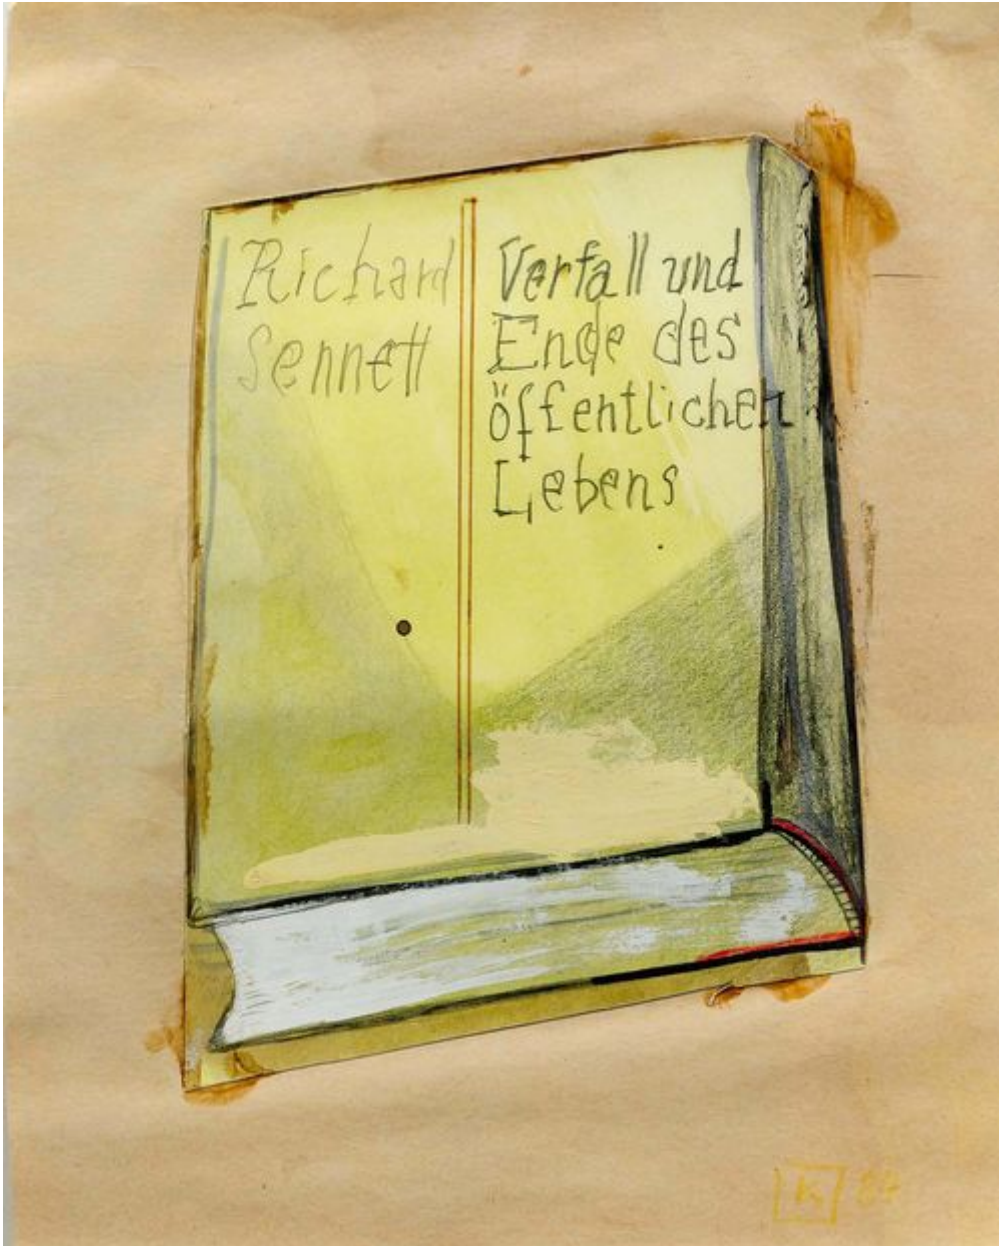 Richard
Sennett
Verfall und
Ende des
öffentlichen
Lebens